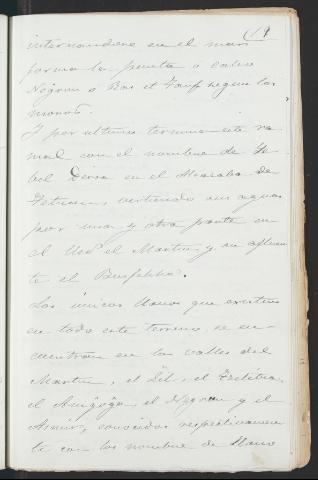 19
internandose en el mar
forma la punta o cabo
Negron o Ras et Tauf segun los
moros.
Y por ultimo termina este ra
mal con el nombre de Ye
bel Dersa en el Alcazaba de
Tetuan, vertiendo sus aguas
por una y otra parte en
el Uad el Martin y su afluen
te el Busfekka.
Los únicos llanos que existen
en todo este terreno, se en
cuentran en los valles del
Martin, el Lil, el
el el y el
Asmir, conocidos respectivamen
te con los nombre de llano